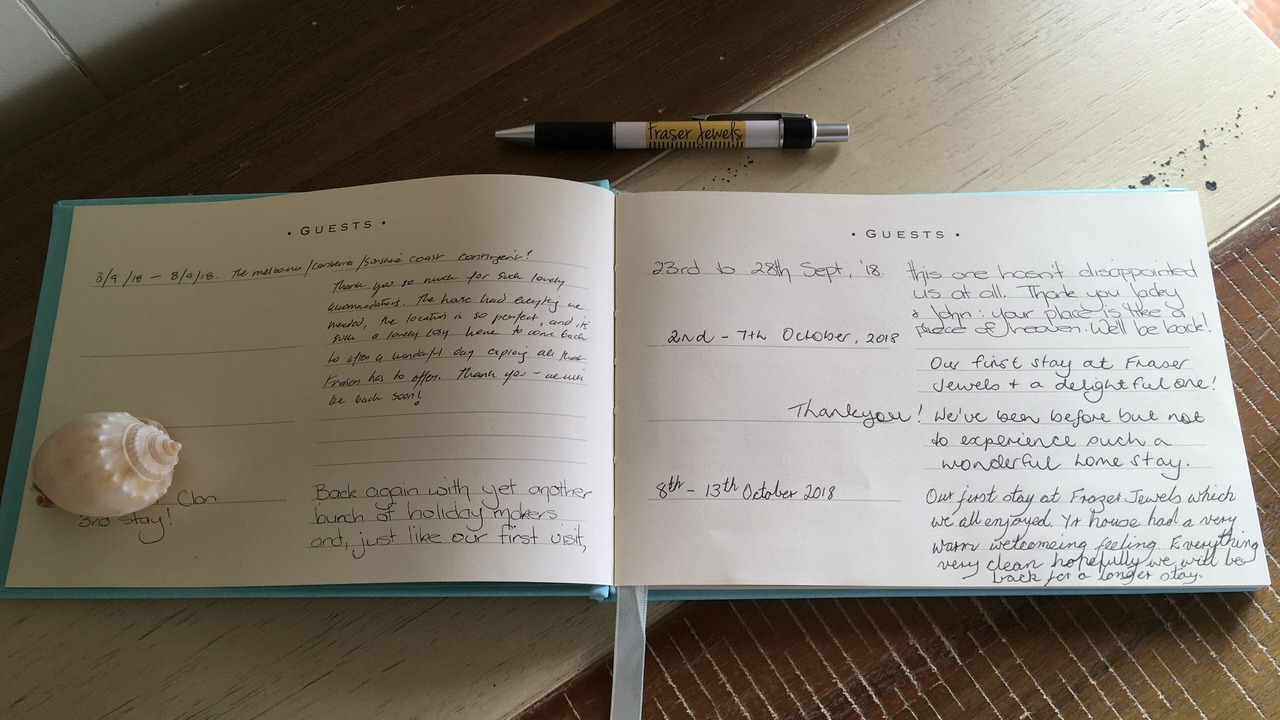 Fraser Jewels
• GUESTS •
3/9/18 – 8/9/18. The melbourne/canberra/sunshine coast contingent!
Thank you so much for such lovely
accomodations. The house had everything we
needed, the location is so perfect, and it's
such a lovely cosy home to come back
to after a wonderful day exploring all that
Fraser has to offer. Thank you – we will
be back soon!
Clan
3rd stay!
Back again with yet another
bunch of holiday makers
and, just like our first visit,
• GUESTS •
23rd to 28th Sept, '18.
this one hasn't disappointed
us at all. Thank you
& John: your place is like a
piece of heaven. We'll be back!
2nd – 7th October, 2018
Our first stay at Fraser
Jewels + a delightful one!
Thankyou! We've been before but not
to experience such a
wonderful home stay.
8th – 13th October 2018
Our first stay at Frazer Jewels which
we all enjoyed. Yr house had a very
warm welcomeing feeling. Everything
very clean hopefully we will be
back for a longer stay.